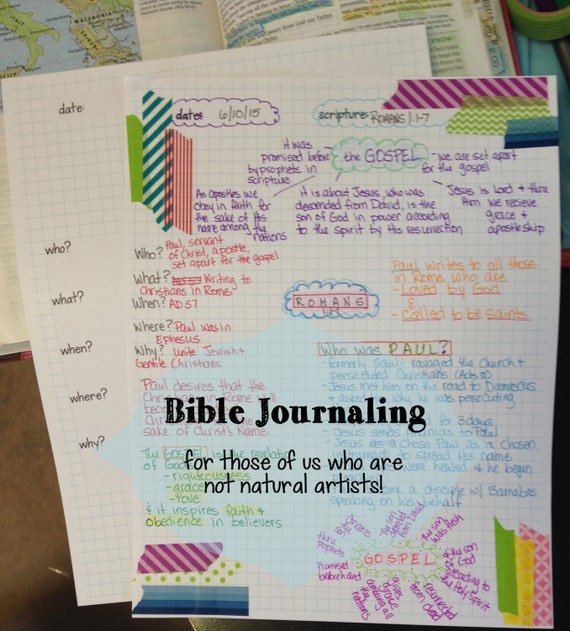 MACEDONIA
SICILY
date:
date: 6/10/15
scripture: ROMANS 1:1-7
it was
promised before
by prophets in
scripture
the GOSPEL
- we are set apart
for the gospel
As apostles we
obey in faith for
the sake of His
name among the
nations
it is about Jesus, who was
descended from David, is the
son of God in power according
to the spirit by His resurrection
Jesus is Lord & thru
Him we recieve
grace &
apostleship
who?
what?
when?
where?
why?
Who? Paul, servant
of Christ, apostle,
set apart for the gospel
What? Writing to
Christians in Rome-
When? AD 57
Where? Paul was in
Ephesus
Why? unite Jewish &
Gentile Christians
Paul writes to all those
in Rome who are
- Loved by God
&
- called to be saints
ROMANS
1:1-7
Who was PAUL?
- formerly Saul - ravaged the Church &
persecuted Christians (Acts 8)
- Jesus met him on the road to Damascus
& asked why he was persecuting
Paul desires that the
sake of Christ's Name
for 3 days
Jesus sends Ananias to Paul
Jesus chose Paul as a chosen
instrument to spread His name
were healed & he began
became a disciple w/ Barnabas
speaking on his behalf
The GOSPEL is the revelation
of God
- righteousness
- grace
- love
& it inspires faith &
obedience in believers
Bible Journaling
for those of us who are
not natural artists!
GOSPEL
Promised
beforehand
thru
prophets
the son
of God
according to
the Holy Spirit
resurrected
from dead
gives
grace
among all
the nations